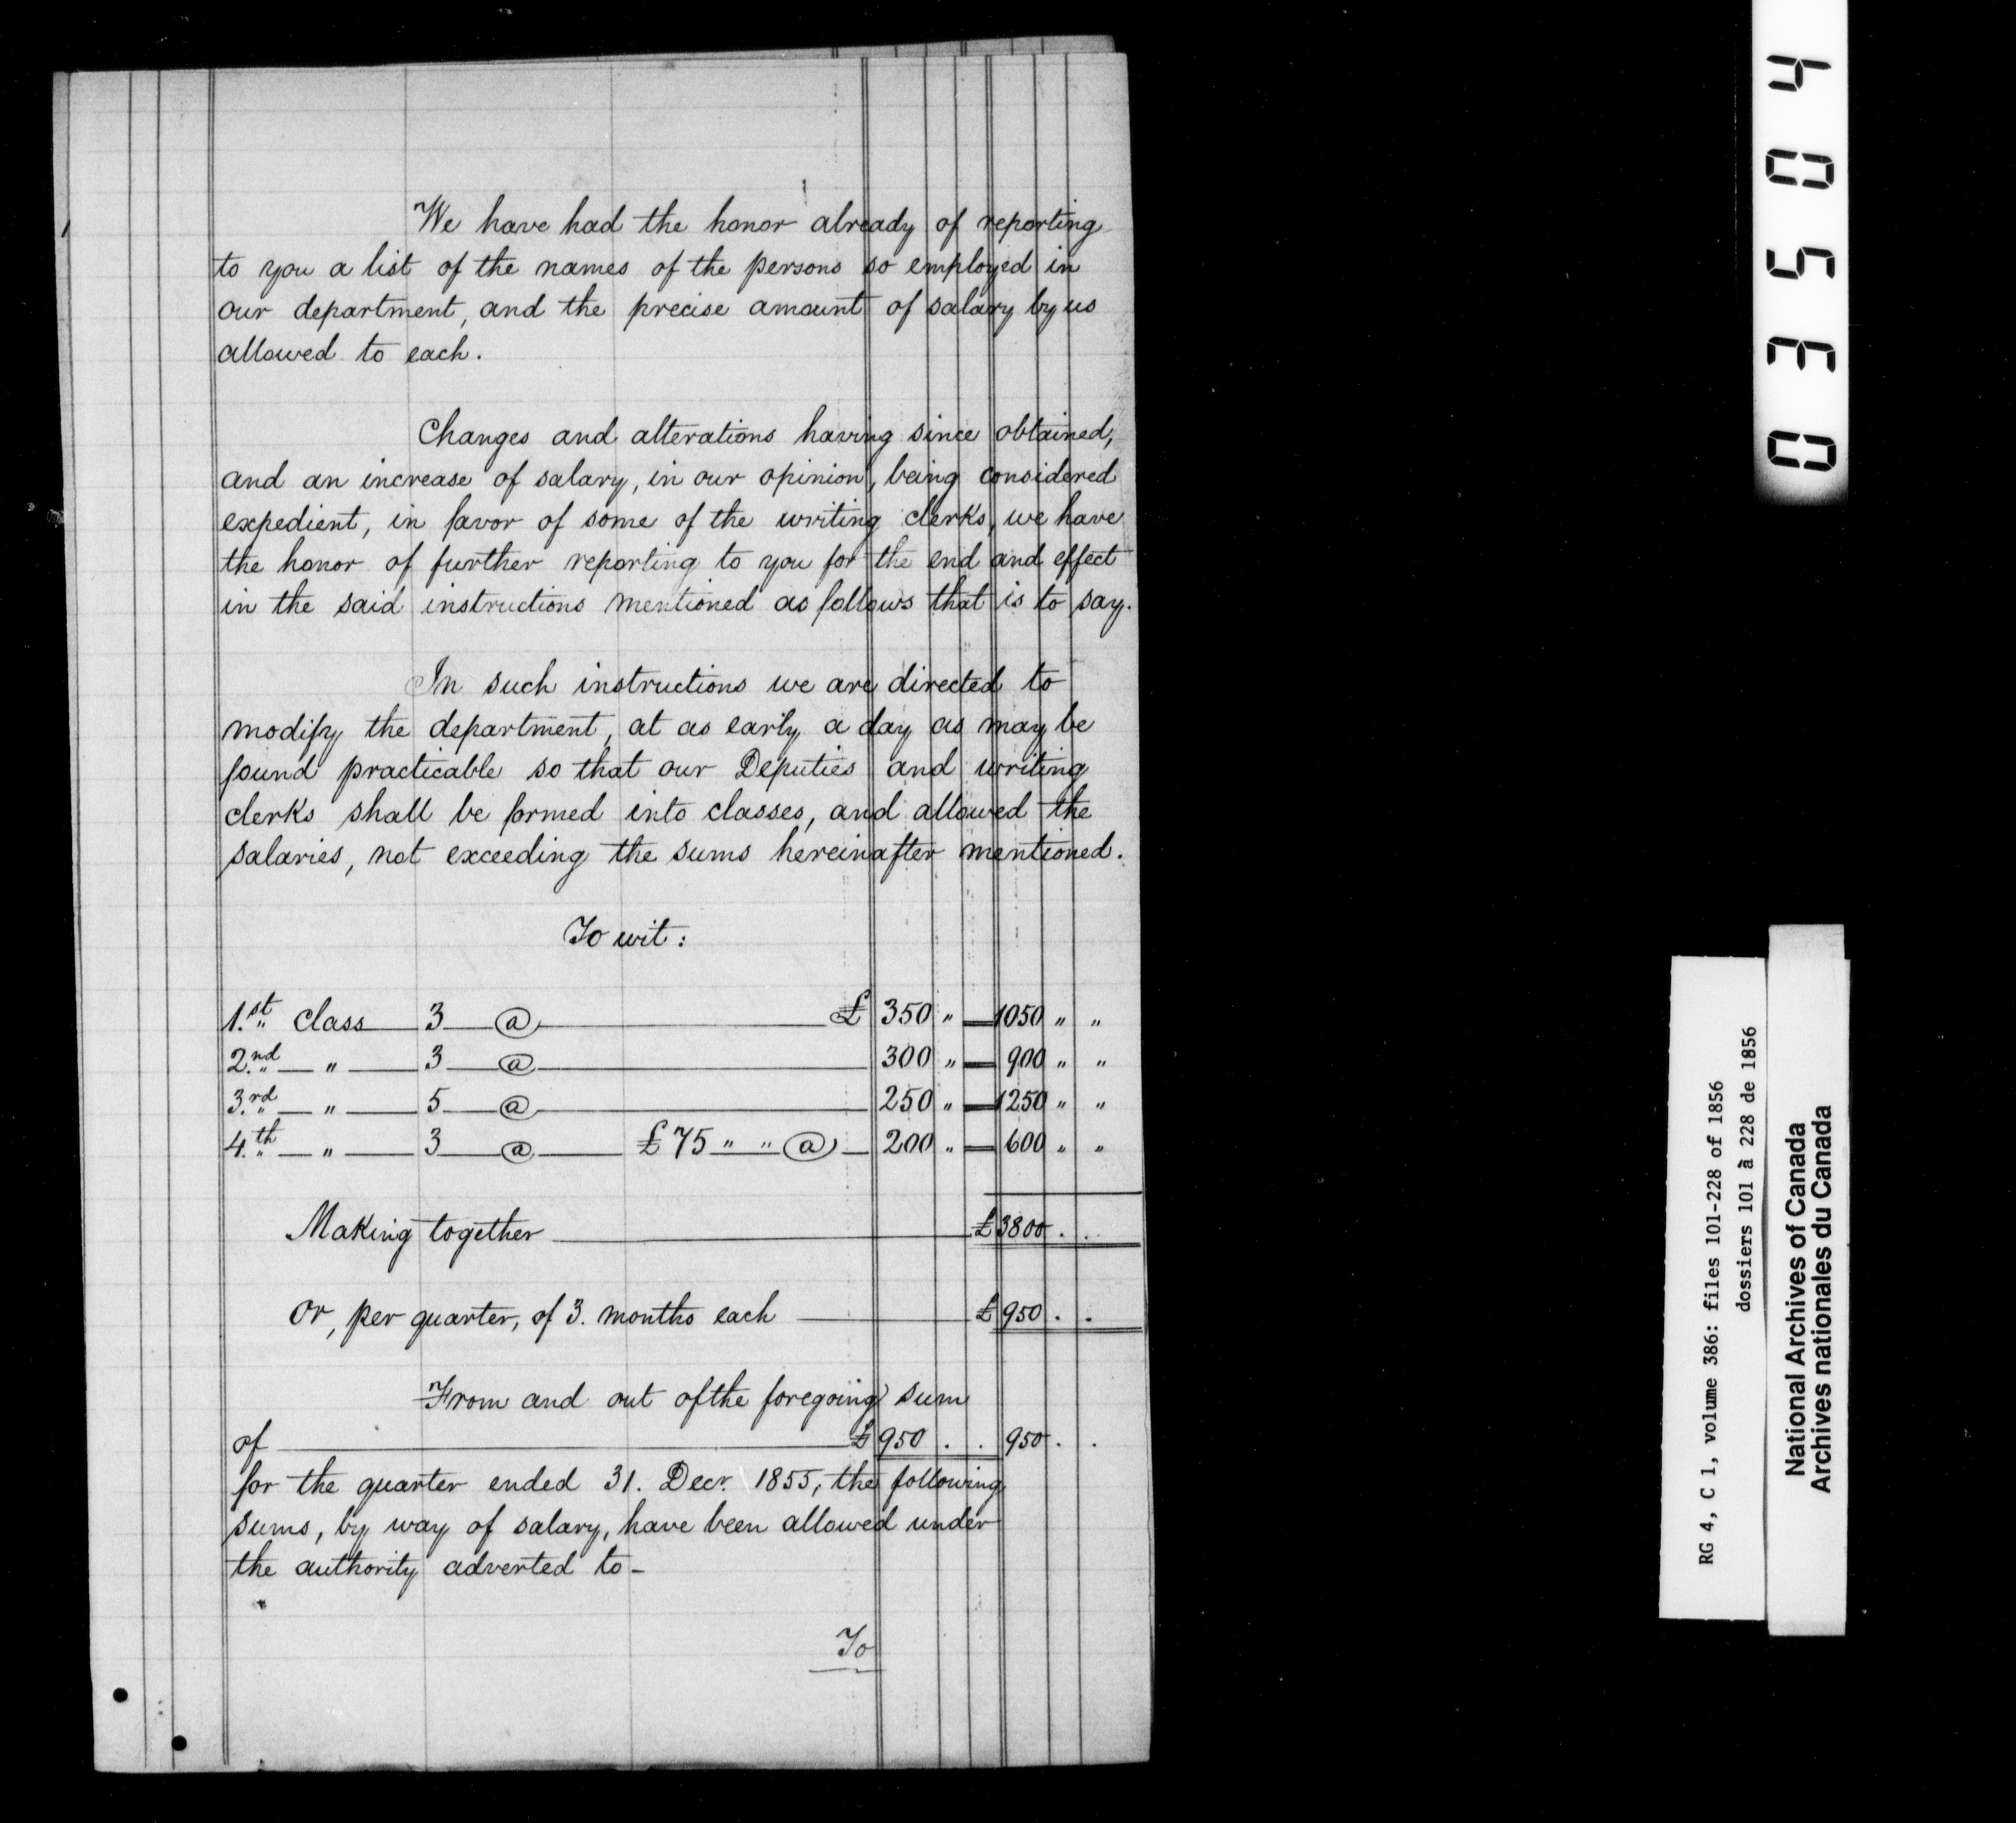 We have had the honor already of reporting
to you a list of the names of the persons so employed in
our department, and the precise amount of salary by us
allowed to each.
Changes and alterations having since obtained,
and an increase of salary, in our opinion, being considered
expedient, in favor of some of the writing clerks, we have
the honor of further reporting to you for the end and effect
in the said instructions mentioned as follows that is to say.
In such instructions we are directed to
modify the department, at as early a day as may be
found practicable so that our Deputies and writing
clerks shall be formed into classes, and allowed the
salaries, not exceeding the sums hereinafter mentioned.
To wit:
1.st class 3 @ £ 350 " 1050 " "
2.nd " 3 @ 300 " 900 " "
3.rd " 5 @ 250 " 1250 " "
4.th " 3 @ £75 " " @ 200 " 600 " "
Making together £3800 . .
Or, per quarter, of 3. months each £950 . .
From and out of the foregoing sum
of £950 . . 950 . .
for the quarter ended 31. Decr. 1855, the following
sums, by way of salary, have been allowed under
the authority adverted to-
To
03504
RG 4, C 1, volume 386: files 101-228 of 1856
dossiers 101 à 228 de 1856
National Archives of Canada
Archives nationales du Canada